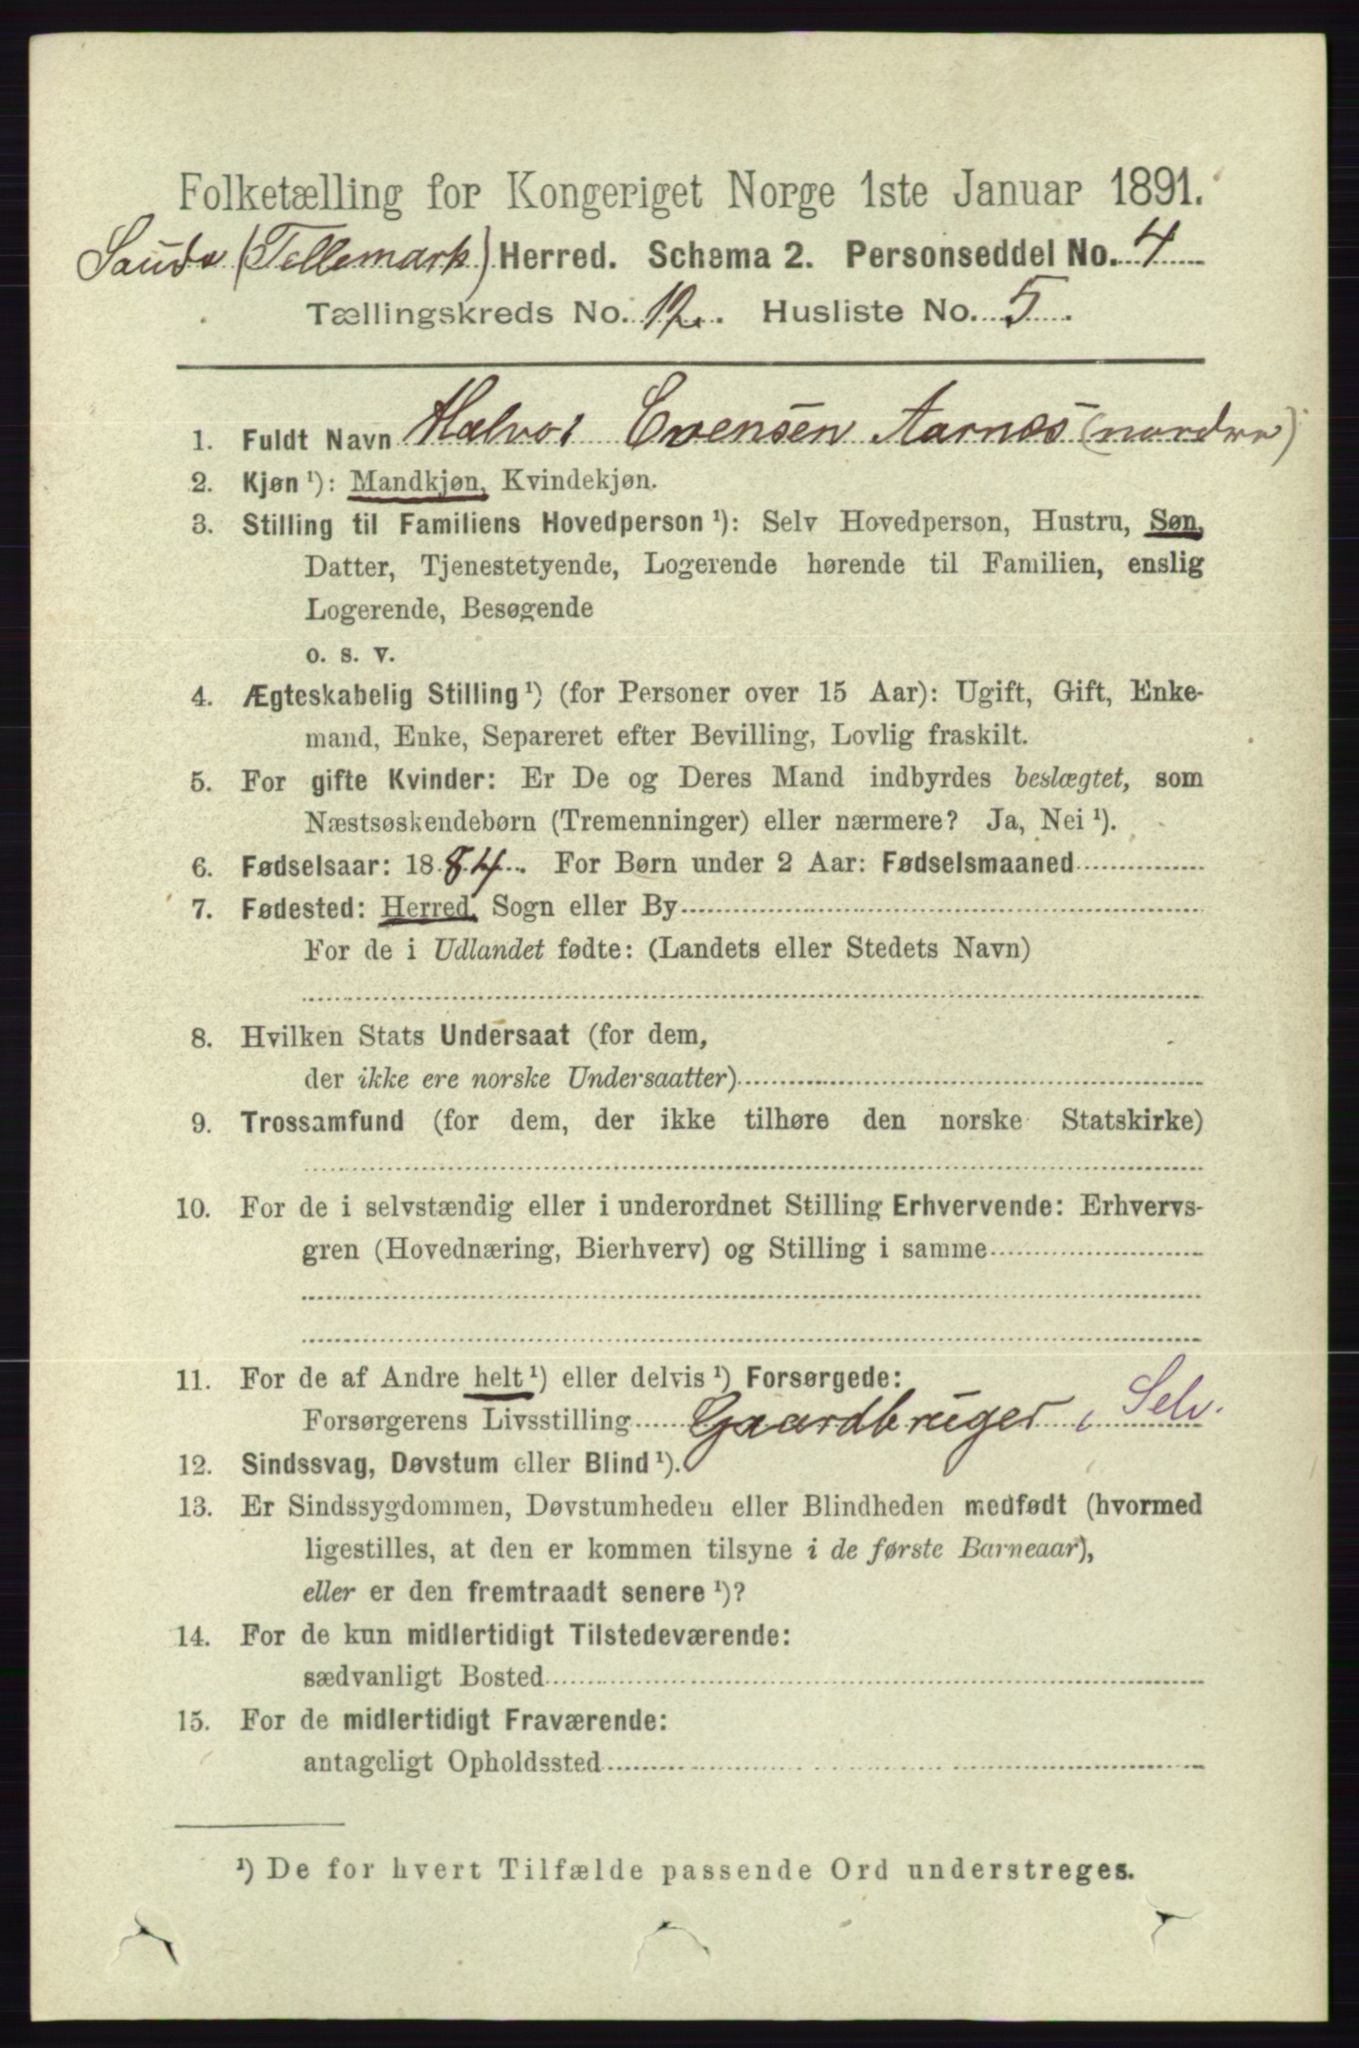 Folketælling for Kongeriget Norge 1ste Januar 1891.
Saude (Tellemark) Herred. Schema 2. Personseddel No. 4
Tællingskreds No. 12. Husliste No. 5.
1. Fuldt Navn Halvor Evensen Aarnes (nordre)
2. Kjøn ¹): Mandkjøn, Kvindekjøn.
3. Stilling til Familiens Hovedperson ¹): Selv Hovedperson, Hustru, Søn,
Datter, Tjenestetyende, Logerende hørende til Familien, enslig
Logerende, Besøgende
o. s. v.
4. Ægteskabelig Stilling ¹) (for Personer over 15 Aar): Ugift, Gift, Enke-
mand, Enke, Separeret efter Bevilling, Lovlig fraskilt.
5. For gifte Kvinder: Er De og Deres Mand indbyrdes beslægtet, som
Næstsøskendebørn (Tremenninger) eller nærmere? Ja, Nei ¹).
6. Fødselsaar: 1884. For Børn under 2 Aar: Fødselsmaaned
7. Fødested: Herred, Sogn eller By
For de i Udlandet fødte: (Landets eller Stedets Navn)
8. Hvilken Stats Undersaat (for dem,
der ikke ere norske Undersaatter)
9. Trossamfund (for dem, der ikke tilhøre den norske Statskirke)
10. For de i selvstændig eller i underordnet Stilling Erhvervende: Erhvervs-
gren (Hovednæring, Bierhverv) og Stilling i samme
11. For de af Andre helt ¹) eller delvis ¹) Forsørgede:
Forsørgerens Livsstilling Gaardbruger, Selv.
12. Sindssvag, Døvstum eller Blind ¹).
13. Er Sindssygdommen, Døvstumheden eller Blindheden medfødt (hvormed
ligestilles, at den er kommen tilsyne i de første Barneaar),
eller er den fremtraadt senere ¹)?
14. For de kun midlertidigt Tilstedeværende:
sædvanligt Bosted
15. For de midlertidigt Fraværende:
antageligt Opholdssted
¹) De for hvert Tilfælde passende Ord understreges.